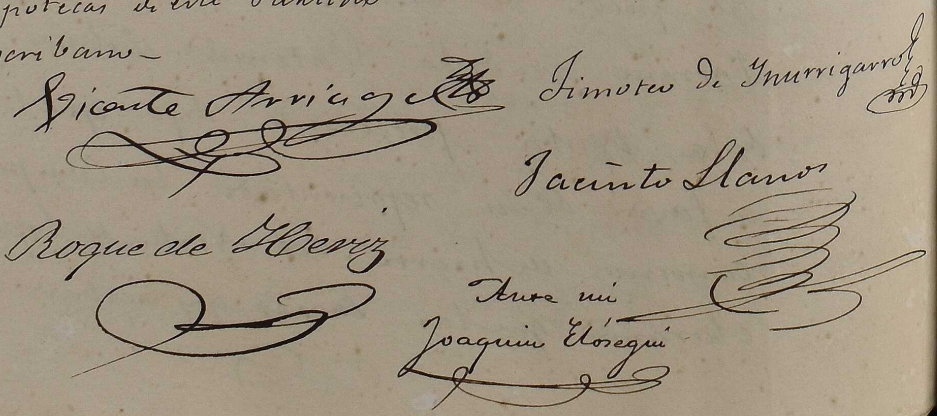 potecas de este
cribano-
Vicente Arriaga
Timoteo de Ynurrigarro
Jacinto Llanos
Roque de Heriz
Ante mi
Joaquin Elósegui